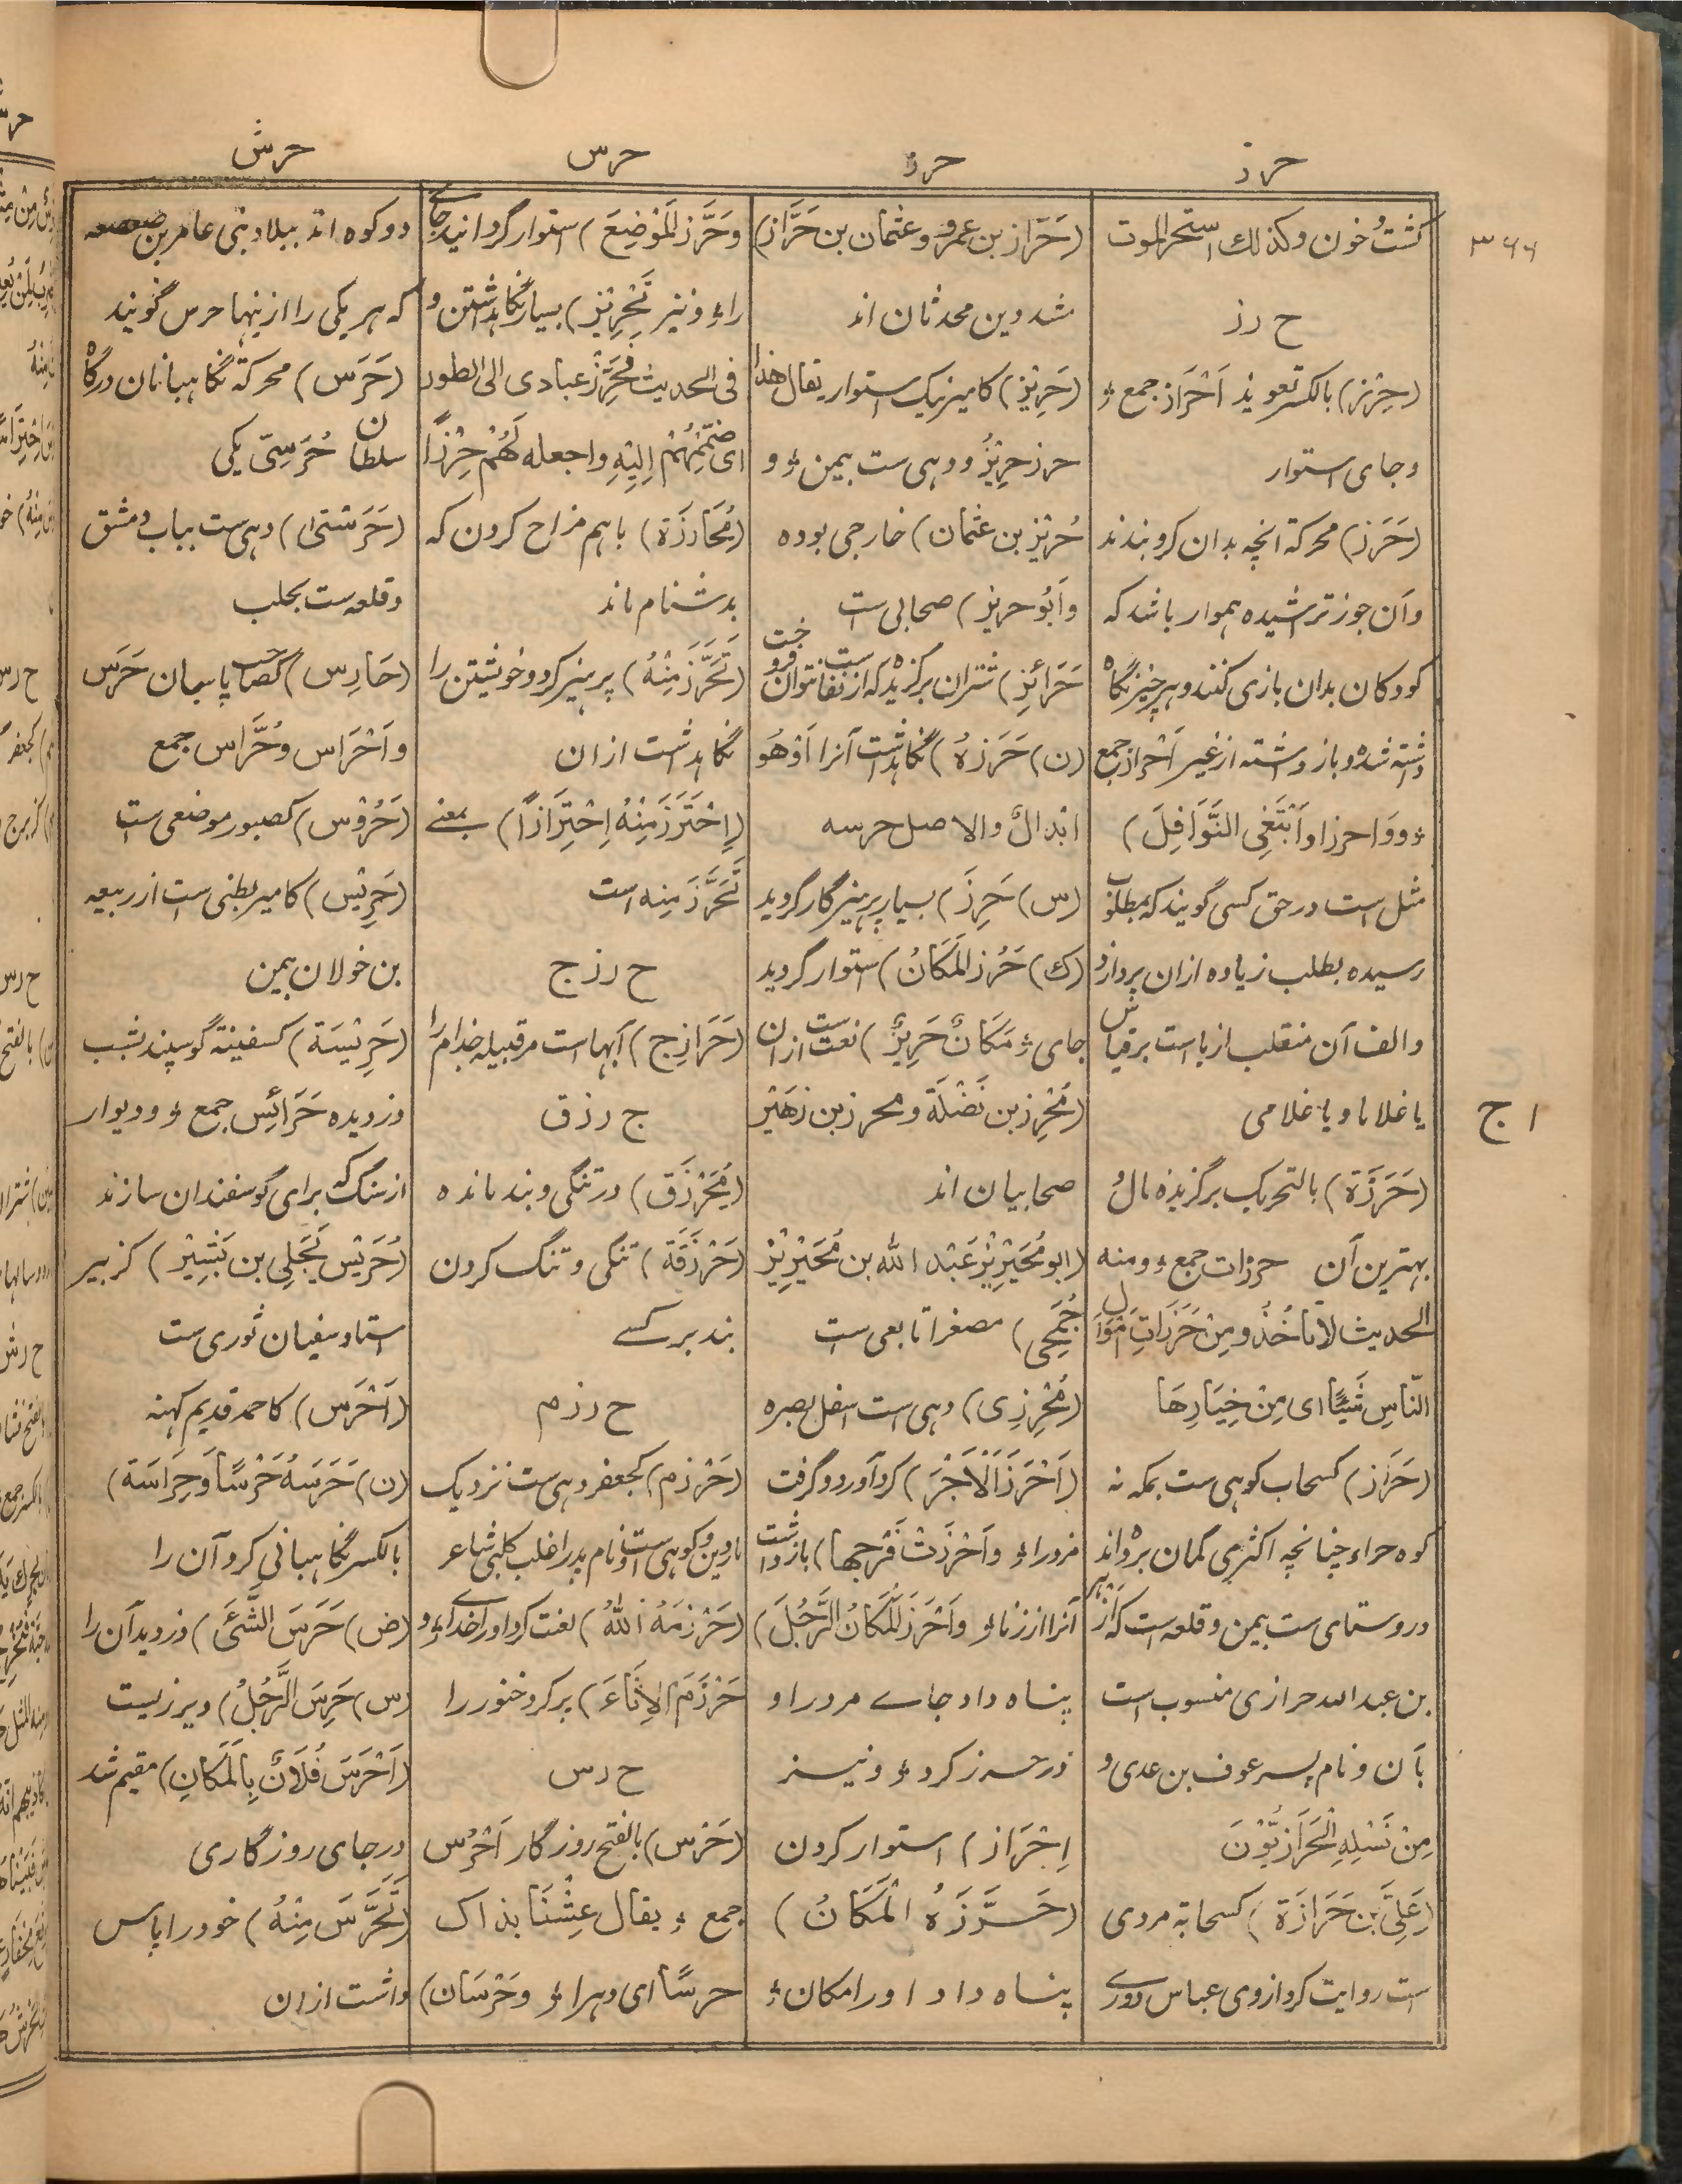 حرز
حرز
حرس
حرش
۳۶۶
کشت و خون وکذلک استحر الموت
ح رز
(حِرْز) بالکسر تعویذ اَحْرَاز جمع ؤ
وجای استوار
(حَرَز) محرکة انچه بدان گرو بندند
وآن جوز تراشیده هموار باشد که
کودکان بدان بازی کنند وهرچیز نگاه
داشته شده وباز داشته از غیر اَحْرَاز جمع
ؤ ووَا حرزا واَبْتَغِی النَّوَافِلَ)
مثل است درحق کسی گویند که بمطلوب
رسیده بطلب زیاده ازان پردازد
والف آن منقلب ازیا است برقیاس
یا غلاما ویا غلامی
۱ ج
(حَرَزَة) بالتحریک برگزیده مال و
بهترین آن حرزات جمع ؤ ومنه
الحدیث لاتاخُذُو مِنْ حَرَزَاتِ اَمْوَال
النّاسِ شَیْئًا ای مِنْ خِیَارِهَا
(حَرَاز) کسحاب کوهی ست بمکه نه
کوه حراء چنانچه اکثری گمان برده اند
وروستای ست بیمن وقلعه است که ازهر
بن عبد الله حرازی منسوب است
بآن ونام پسر عوف بن عدی و
مِنْ نَسْلِهِ الْحَرَازِیُّوْنَ
(عَلِیّ بْن حَرَازَة) کسحابة مردی
است روایت کرد ازوی عباس دوری
(حَرَاز بن عمرو وعثمان بن حَرَّاز)
شد دین محدثان اند
(حَرِیْز) کامیر نیک استوار یقال هذا
حرز حریْزٌ ودهی ست بیمن ؤ و
حُرَیْز بن عُثمان) خارجی بوده
واَبُو حریز) صحابی ست
حَرَائز) شتران برگزیده که از نفاست نتوان فروخت
(ن) حَرَزَهُ) نگاهداشت آنرا اَوْهُو
ابدالٌ والاصل حرسه
(س) حَرِزَ) بسیار پرهیزگار گردید
(ک) حَرُزَ الْمَکَانُ) استوار گردید
جای ؤ مَکَانٌ حَرِیْزٌ) نعت ست ازان
(مُحْرِز بن نَضْلَة ومحرز بن زهَیْر
صحابیان اند
(ابو مُحَیْرِیْز عَبْد الله بن مُحَیْرِیْز
جُمَحِی) مصغرا تابعی ست
(مُحْرِزِی) دهی ست اسفل بصره
(اَحْرَزَ الْاَجْرَ) گرد آورد وگرفت
مزد را ؤ واَحْرَزَتْ فَرْجها) بازداشت
آنرا از زنا ؤ واَحْرَزَ الْمَکَانُ الرَّجُلَ)
پناه داد جاے مرد را و
در حرز کرد ؤ ونیز
اِحْرَاز) استوار کردن
(حَرَّزَهُ الْمَکَانُ)
پناه داد اورا مکان ؤ
وحَرَّزَ الْمَوْضِعَ) استوار گردانید جاے
را ؤ ونیز تَحْرِیْز) بسیار نگاهداشتن و
فی الحدیث فَحَرِّزْ عبادی الی الطور
ای ضُمَّهُمْ اِلَیْهِ واجعله لَهُمْ حِرْزًا
(مُحَارَزَة) باهم مزاح کردن که
بدشنام ماند
(تَحَرَّزَ مِنْهُ) پرهیز کرد وخویشتن را
نگاهداشت ازان
(اِحْتَرَزَ مِنْهُ اِحْتِرَازًا) بمعنے
تَحَرَّزَ مِنه است
ح رز ج
(حَرَازِج) آبهاست مر قبیله جذام را
ح رز ق
(مُحَرْزَق) در تنگی وبند مانده
(حَرْزَقَة) تنگی وتنگ کردن
بند بر کسے
ح رز م
(حَرْزم) کجعفر دهی ست نزدیک
ماردین وکوهی ست ونام پدر اغلب کلبی شاعر
(حَرْزَمَهُ اللهُ) لعنت کرد اورا خداے ؤ و
حَرْزَمَ الاِنَاءَ) پر کرد خنور را
ح رس
(حَرْس) بالفتح روزگار اَحْرُس
جمع ؤ یقال عِشْنَا بذاک
حرسًا ای دهرا ؤ وحَرْسَان)
دو کوه اند ببلاد بنی عامر بن صعصعه
که هر یکی را از ینها حرس گویند
(حَرَس) محرکة نگاهبانان درگاه
سلطان حَرَسِیّ یکی
(حَرَسْتَی) دهی ست بباب دمشق
وقلعه ست بحلب
(حَارِس) کصاحب پاسبان حَرَس
واَحْرَاس وحُرَّاس جمع
(حَرُوْس) کصبور موضعی ست
(حَرِیْس) کامیر بطنی ست از ربیعه
بن خولان بیمن
(حَرِیْسَة) کسفینة گوسپند بشب
دزدیده حَرَائِس جمع ؤ ودیوار
از سنگ که برای گوسفندان سازند
(حُرَیْس بَجَلِی بن بَشِیْر) کزبیر
استاد سفیان ثوری ست
(اَحْرَس) کاحمد قدیم کهنه
(ن) حَرَسَهُ حَرْسًا وحِرَاسَة)
بالکسر نگاهبانی کرد آن را
(ض) حَرَسَ الشَّیْئَ) دزدید آن را
(س) حَرِسَ الرَّجُلُ) دیر زیست
(اَحْرَسَ فُلَانٌ بِالْمَکَانِ) مقیم شد
در جای روزگاری
(تَحَرَّسَ مِنْهُ) خود را پاس
داشت ازان